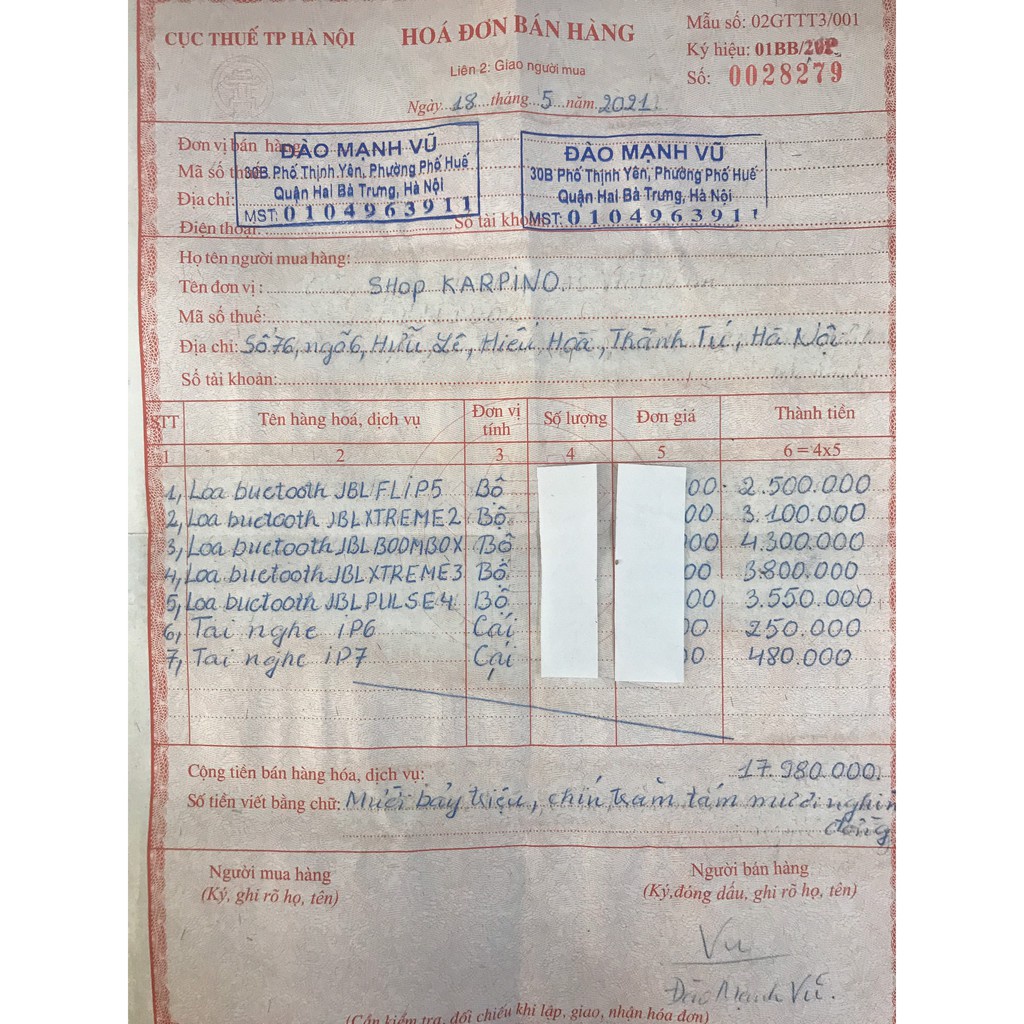 CỤC THUẾ TP HÀ NỘI
HOÁ ĐƠN BÁN HÀNG
Liên 2: Giao người mua
Ngày 18 tháng 5 năm 2021
Mẫu số: 02GTTT3/001
Ký hiệu: 01BB/20P
Số: 0028279
Đơn vị bán hàng
Mã số thuế
Địa chỉ:
Điện thoại:
Số tài kho
ĐÀO MẠNH VŨ
30B Phố Thịnh Yên, Phường Phố Huế
Quận Hai Bà Trưng, Hà Nội
MST: 0104963911
ĐÀO MẠNH VŨ
30B Phố Thịnh Yên, Phường Phố Huế
Quận Hai Bà Trưng, Hà Nội
MST: 0104963911
Họ tên người mua hàng:
Tên đơn vị: SHOP KARPINO
Mã số thuế:
Địa chỉ: Số 76, ngõ 6, Hữu Lê, Hiếu Hoà, Thành Trí, Hà Nội
Số tài khoản:
STT Tên hàng hoá, dịch vụ Đơn vị tính Số lượng Đơn giá Thành tiền
1 2 3 4 5 6 = 4x5
1, Loa buctooth JBL FLIP5 Bộ 00 2.500.000
2, Loa buctooth JBL XTREME2 Bộ 00 3.100.000
3, Loa buctooth JBL BOOMBOX Bộ 00 4.300.000
4, Loa buctooth JBL XTREME3 Bộ 00 3.800.000
5, Loa buctooth JBL PULSE4 Bộ 00 3.550.000
6, Tai nghe iP6 Cái 00 250.000
7, Tai nghe iP7 Cái 0 480.000
Cộng tiền bán hàng hóa, dịch vụ: 17.980.000
Số tiền viết bằng chữ: Mười bảy triệu, chín trăm tám mươi nghìn
đồng
Người mua hàng
(Ký, ghi rõ họ, tên)
Người bán hàng
(Ký, đóng dấu, ghi rõ họ, tên)
Vu
Đào Mạnh Vũ.
(Cần kiểm tra, đối chiếu khi lập, giao, nhận hóa đơn)